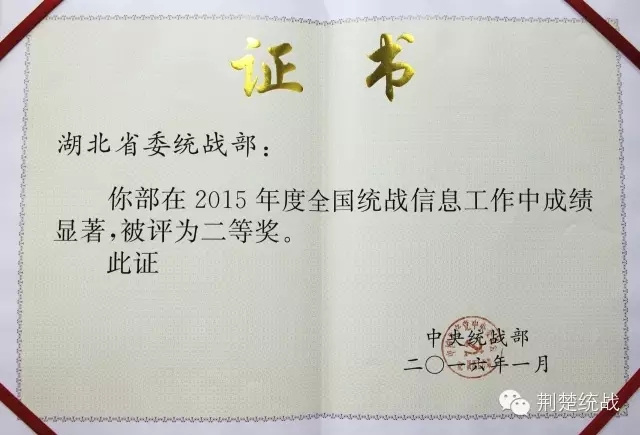 证书
湖北省委统战部：
你部在2015年度全国统战信息工作中成绩
显著，被评为二等奖。
此证
中央统战部
二〇一六年一月
荆楚统战